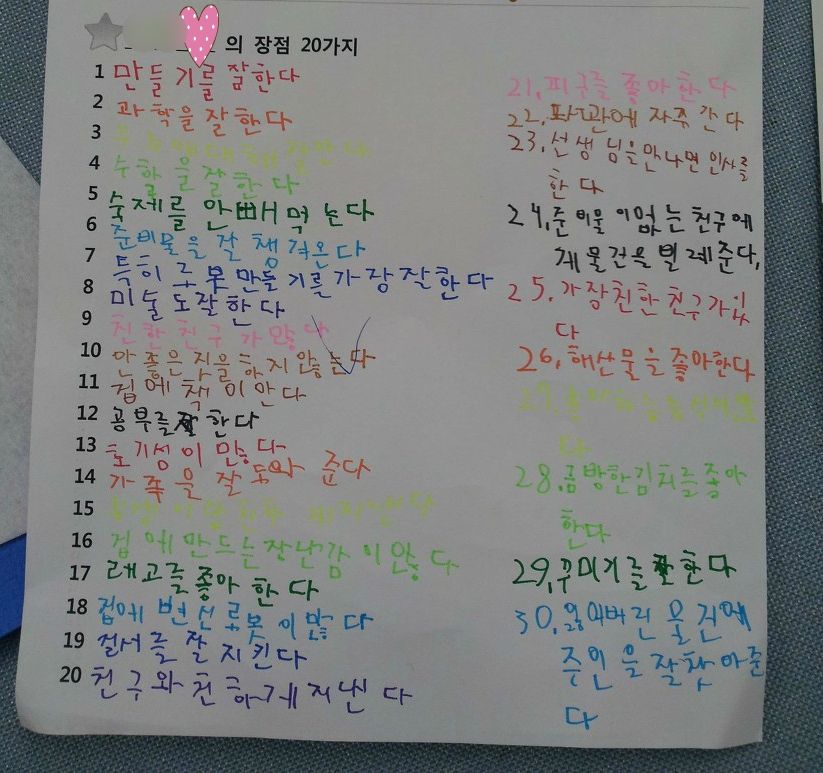 의 장점 20가지
1 만들기를 잘한다
2 과학을 잘한다
3
4 수학을 잘한다
5 숙제를 안빼먹는다
6 준비물을 잘 챙겨온다
7 특히 로봇만들기를가장잘한다
8 미술도잘한다
9 친한친구가많다
10 안좋은짓을하지않는다
11 집에책이만다
12 공부를잘한다
13 호기심이많다
14 가족을잘도와준다
15
16 집에만드는장난감이많다
17 레고를좋아한다
18 집에변신로봇이많다
19 질서를잘지킨다
20 친구와친하게지낸다
21. 피구를좋아한다
22. 과관에자주간다
23. 선생님을만나면인사를
한다
24. 준비물이없는친구에
게물건을빌려준다.
25. 가장친한친구가있
다
26. 해산물을좋아한다
27.
다
28. 금방한김치를좋아
한다
29. 꾸미기를잘한다
30. 잃어버린물건에
주인을잘찾아준
다